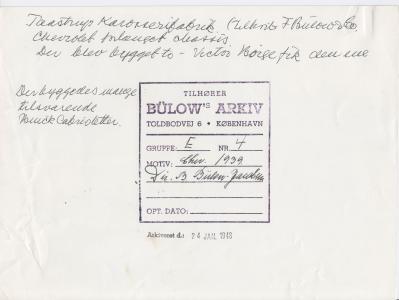 Taastrup Karosserifabrik (Tilknyt F Bülow & Co,
Chevrolet forlænget chassis
Der blev bygget to - Victor Borge fik den ene
Der byggedes mange
tilsvarende
Buick Cabrioletter.
TILHØRER
BÜLOW'S ARKIV
TOLDBODVEJ 6 • KØBENHAVN
GRUPPE: E NR. 4
MOTIV: Chev. 1939
Dir. B Bülow-Jacobsen
OPT. DATO:
Arkiveret d.: 24 JAN. 1948